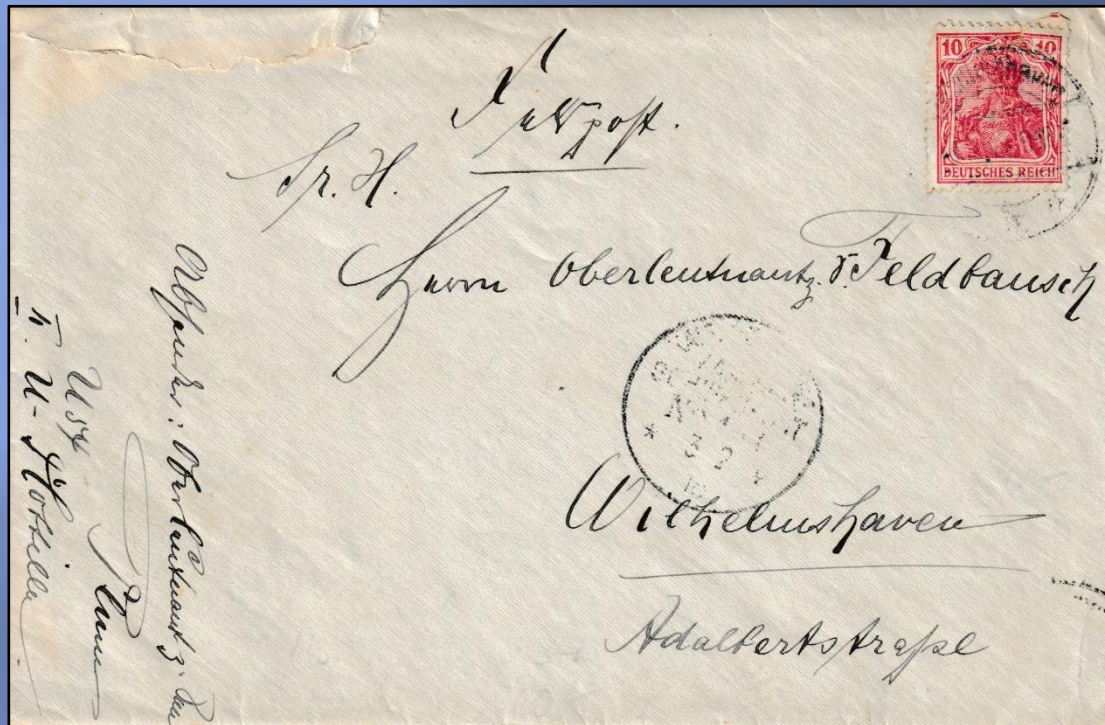 10 10
DEUTSCHES REICH
Feldpost.
Sr. H.
Herrn Oberleutnant z. S. Feldbausch
3 2
Wilhelmshaven
Adalbertstraße
Absender: Oberleutnant z. See
U 54
IV. U-Flottille